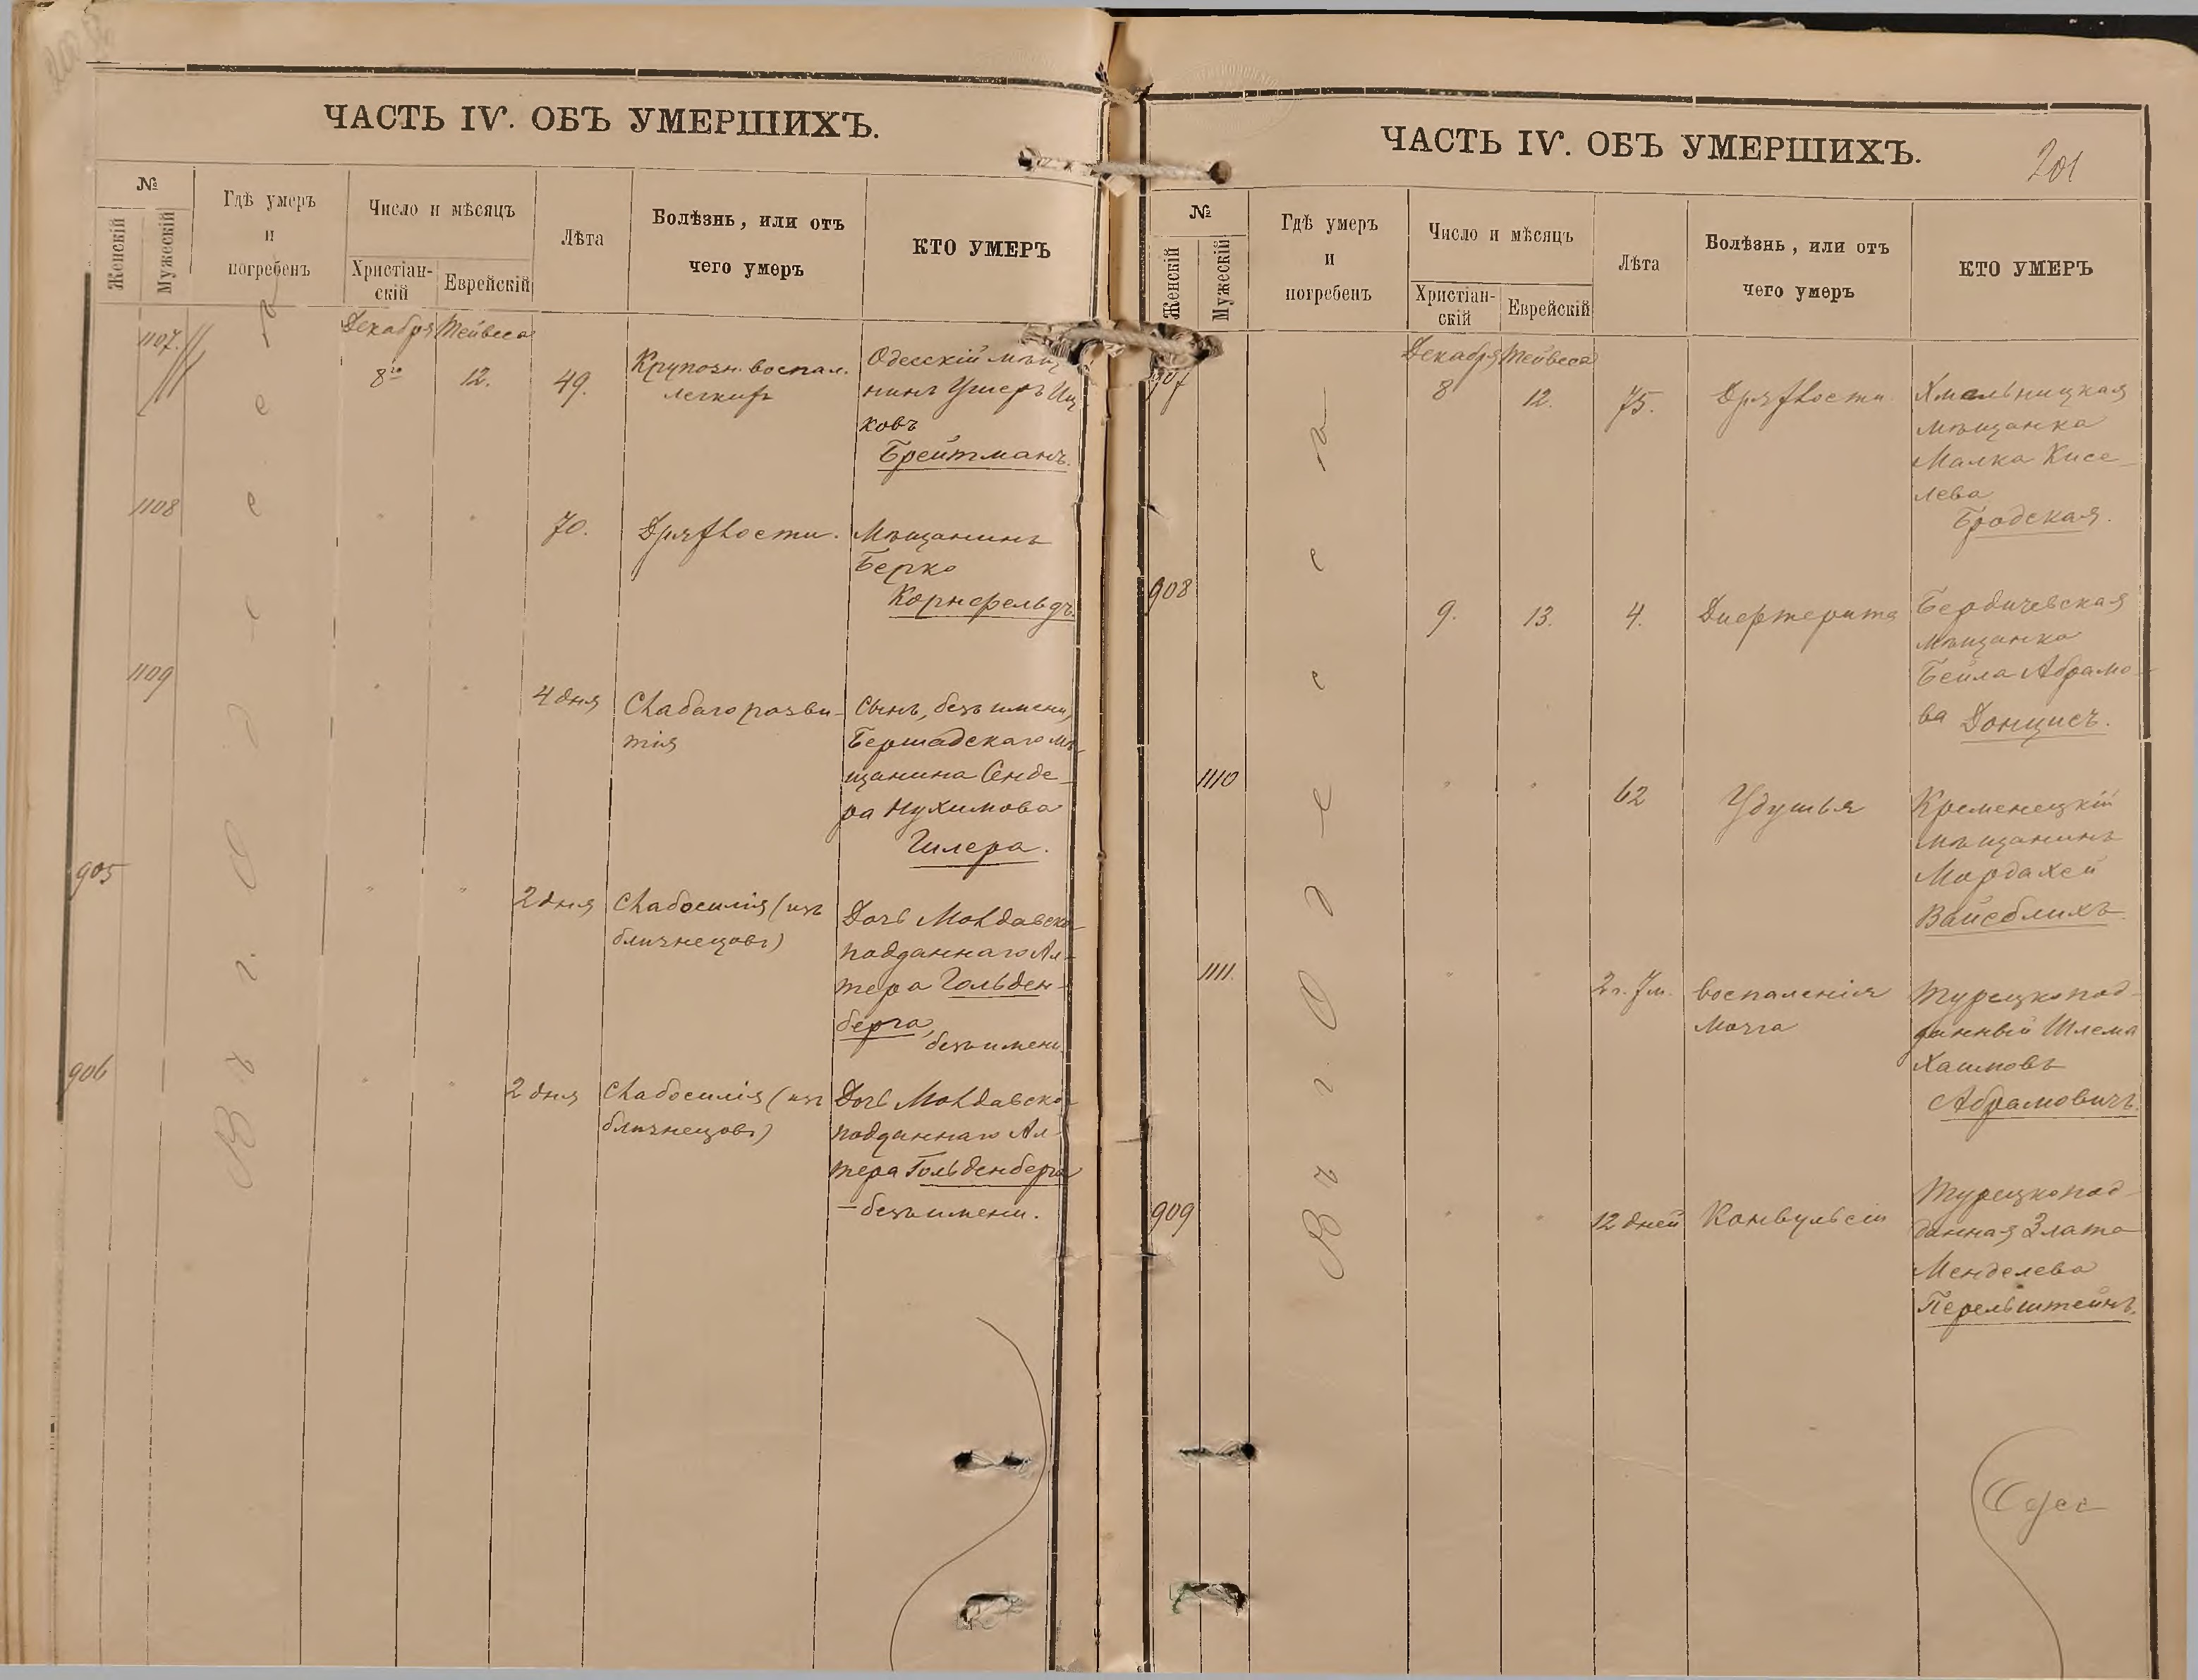 ЧАСТЬ IV. ОБЪ УМЕРШИХЪ.
№
Женскій
Мужескій
Гдѣ умеръ
и
погребенъ
Число и мѣсяцъ
Христіан-
скій
Еврейскій
Лѣта
Болѣзнь, или отъ
чего умеръ
КТО УМЕРЪ
Въ г. Одессѣ
Декабря Тейвеса
1107.
8го
12.
49.
Крупозн. воспал.
легкихъ
Одесскій мѣщ
нинъ Ушеръ Иц
ковъ
Брейтманъ.
1108
"
"
70.
Дряхлости.
Мѣщанинъ
Берко
Корнфельдъ.
1109
"
"
4 дня
Слабаго разви-
тія
Сынъ, безъ имени,
Бершадскаго мѣ-
щанина Сенде-
ра Нухимова
Гилера.
905
"
"
2 дня
Слабосилія (изъ
близнецовъ)
Дочь Молдавско-
подданнаго Ал-
тера Гольден-
берга,
безъ имени.
906
"
"
2 дня
Слабосилія (изъ
близнецовъ)
Дочь Молдавско-
подданнаго Ал-
тера Гольденберга
– безъ имени.
ЧАСТЬ IV. ОБЪ УМЕРШИХЪ.
201
№
Женскій
Мужескій
Гдѣ умеръ
и
погребенъ
Число и мѣсяцъ
Христіан-
скій
Еврейскій
Лѣта
Болѣзнь, или отъ
чего умеръ
КТО УМЕРЪ
Въ г. Одессѣ
Декабря Тейвеса
907
8
12.
75.
Дряхлости.
Хмельницкая
мѣщанка
Малка Кисе-
лева
Бродская.
908
9.
13.
4.
Дифтерита
Бердичевская
мѣщанка
Бейла Абрамо-
ва Донцисъ.
1110
"
"
62
Удушья
Кременецкій
мѣщанинъ
Мордахей
Вайсблихъ.
1111.
"
"
2 г. 7 м.
воспаленія
мозга
Турецкопод-
данный Шлема
Хаимовъ
Абрамовичъ.
909
"
"
12 дней
Конвульсіи
Турецкопод-
данная Злата
Менделева
Перельштейнъ.